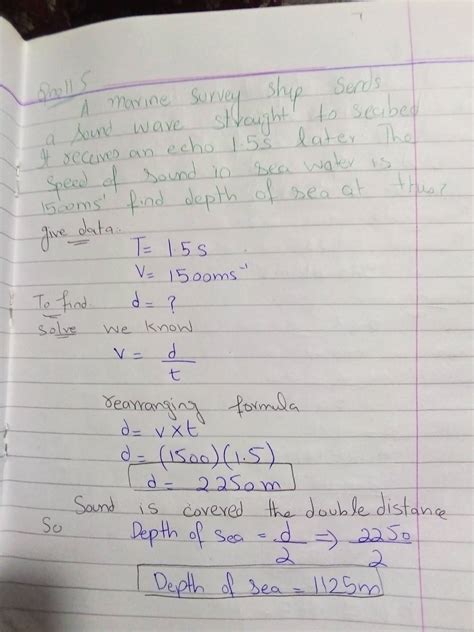 A marine survey ship sends
a sound wave straight to seabed
It receives an echo 1.5s later The
speed of sound in sea water is
1500ms⁻¹ find depth of sea at
give data.
T= 1.5s
V= 1500ms⁻¹
To find. d= ?
solve we know
v = d/t
rearranging formula
d= v×t
d= (1500)(1.5)
d= 2250m
Sound is covered the double distance
So
Depth of sea = d/2 ⇒ 2250/2
Depth of sea = 1125m